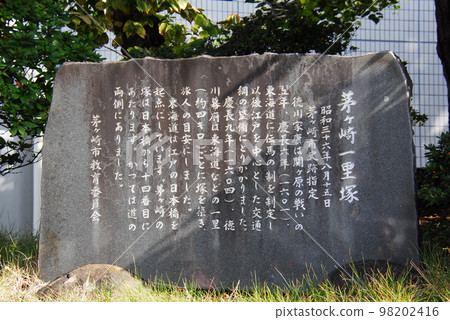 茅ヶ崎一里塚
昭和三十六年八月十五日
茅ヶ崎市史跡指定
徳川家康は関ヶ原の戦いの
翌年、慶長六年(一六〇一)、
東海道に伝馬の制を制定し
以後江戸を中心とした交通
網の整備にとりかかりました。
慶長九年(一六〇四)、徳
川幕府は東海道などの一里
(約四キロ)ごとに塚を築き、
旅人の目安にしました。
東海道は江戸の日本橋を
起点にしています。茅ヶ崎の
塚は日本橋から十四番目に
あたります。かつては道の
両側にありました。
茅ヶ崎市教育委員会
PIXTA
98202416